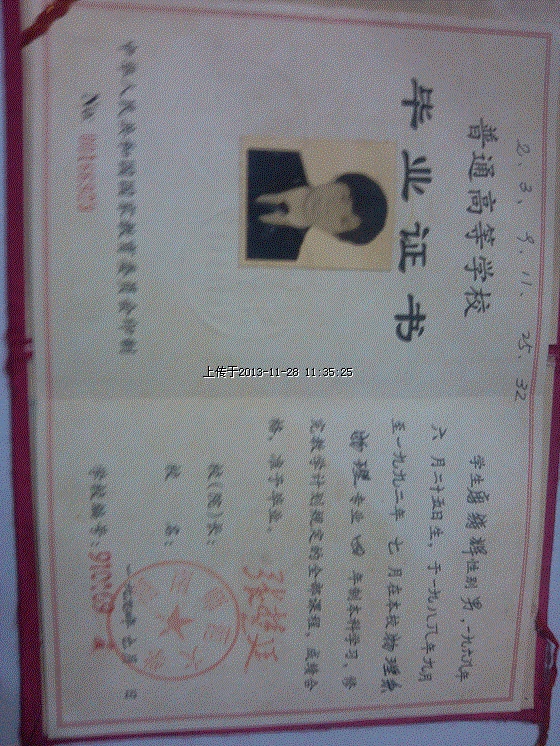 2、3、9、11、25、32
普通高等学校
毕业证书
中华人民共和国国家教育委员会印制
上传于2013-11-28 11:35:25
性别男,一九六九年
六月二十五日生,于一九八八年九月
至一九九二年七月在本校物理系
物理专业四年制本科学习,修
完教学计划规定的全部课程,成绩合
格,准予毕业。
校(院)长:
校名:
学校编号: